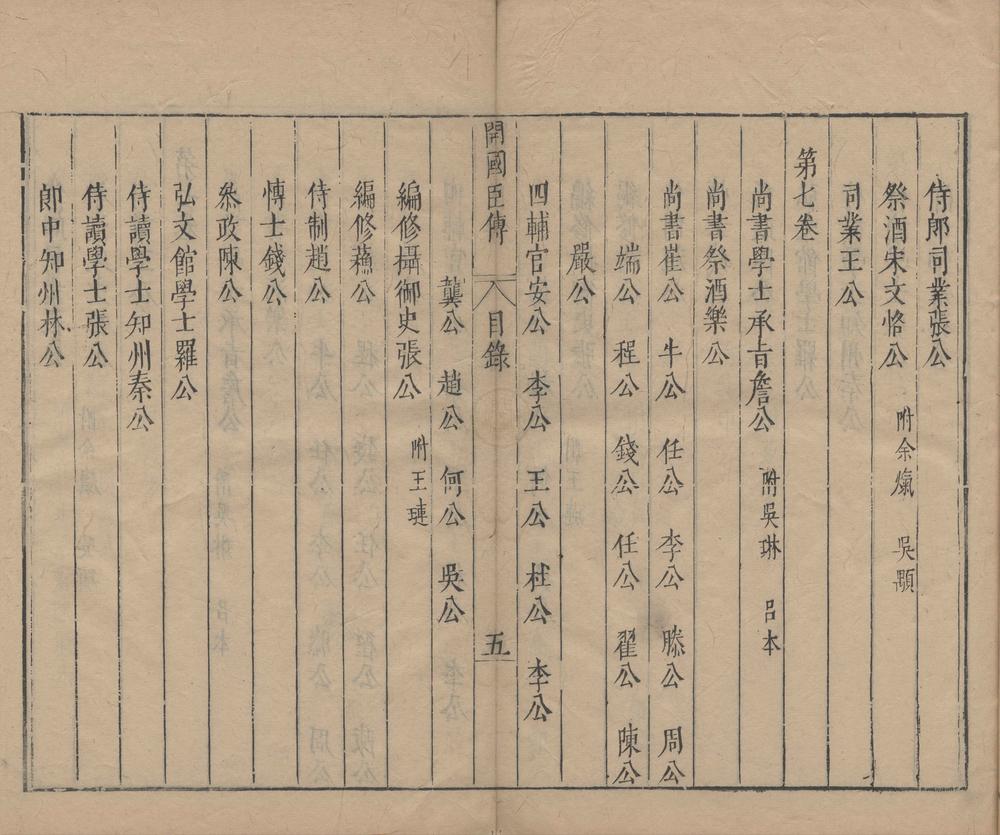 侍郎司業張公
祭酒宋文恪公 附余熂 吳顒
司業王公
第七卷
尚書學士承旨詹公 附吳琳 呂本
尚書祭酒樂公
尚書崔公 牛公 任公 李公 滕公 周公
端公 程公 錢公 任公 翟公 陳公
嚴公
四輔官安公 李公 王公 杜公 李公
開國臣傳 目錄 五
龔公 趙公 何公 吳公
編修攝御史張公 附王璉
編修蘓公
侍制趙公
愽士錢公
叅政陳公
弘文館學士羅公
侍讀學士知州秦公
侍讀學士張公
郎中知州林公